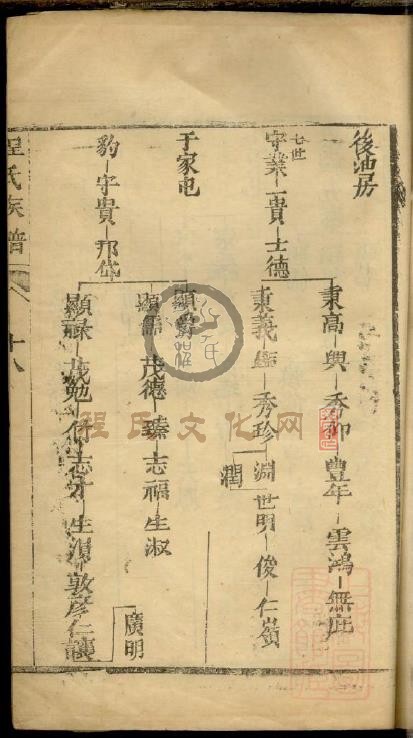 後池房
七世
守業 貴 士德
秉高 興 秀仰 豐年 雲鴻 無疵
秉義 秀珍 淵 世明 俊 仁嶺
潤
于家屯
豹 字貴 邦岱
顯爵
顯 茂德 臻 志福 生淑
顯祿 茂勉 志才 生 敦 彥仁
廣明
程氏族譜
十八
程氏文化网